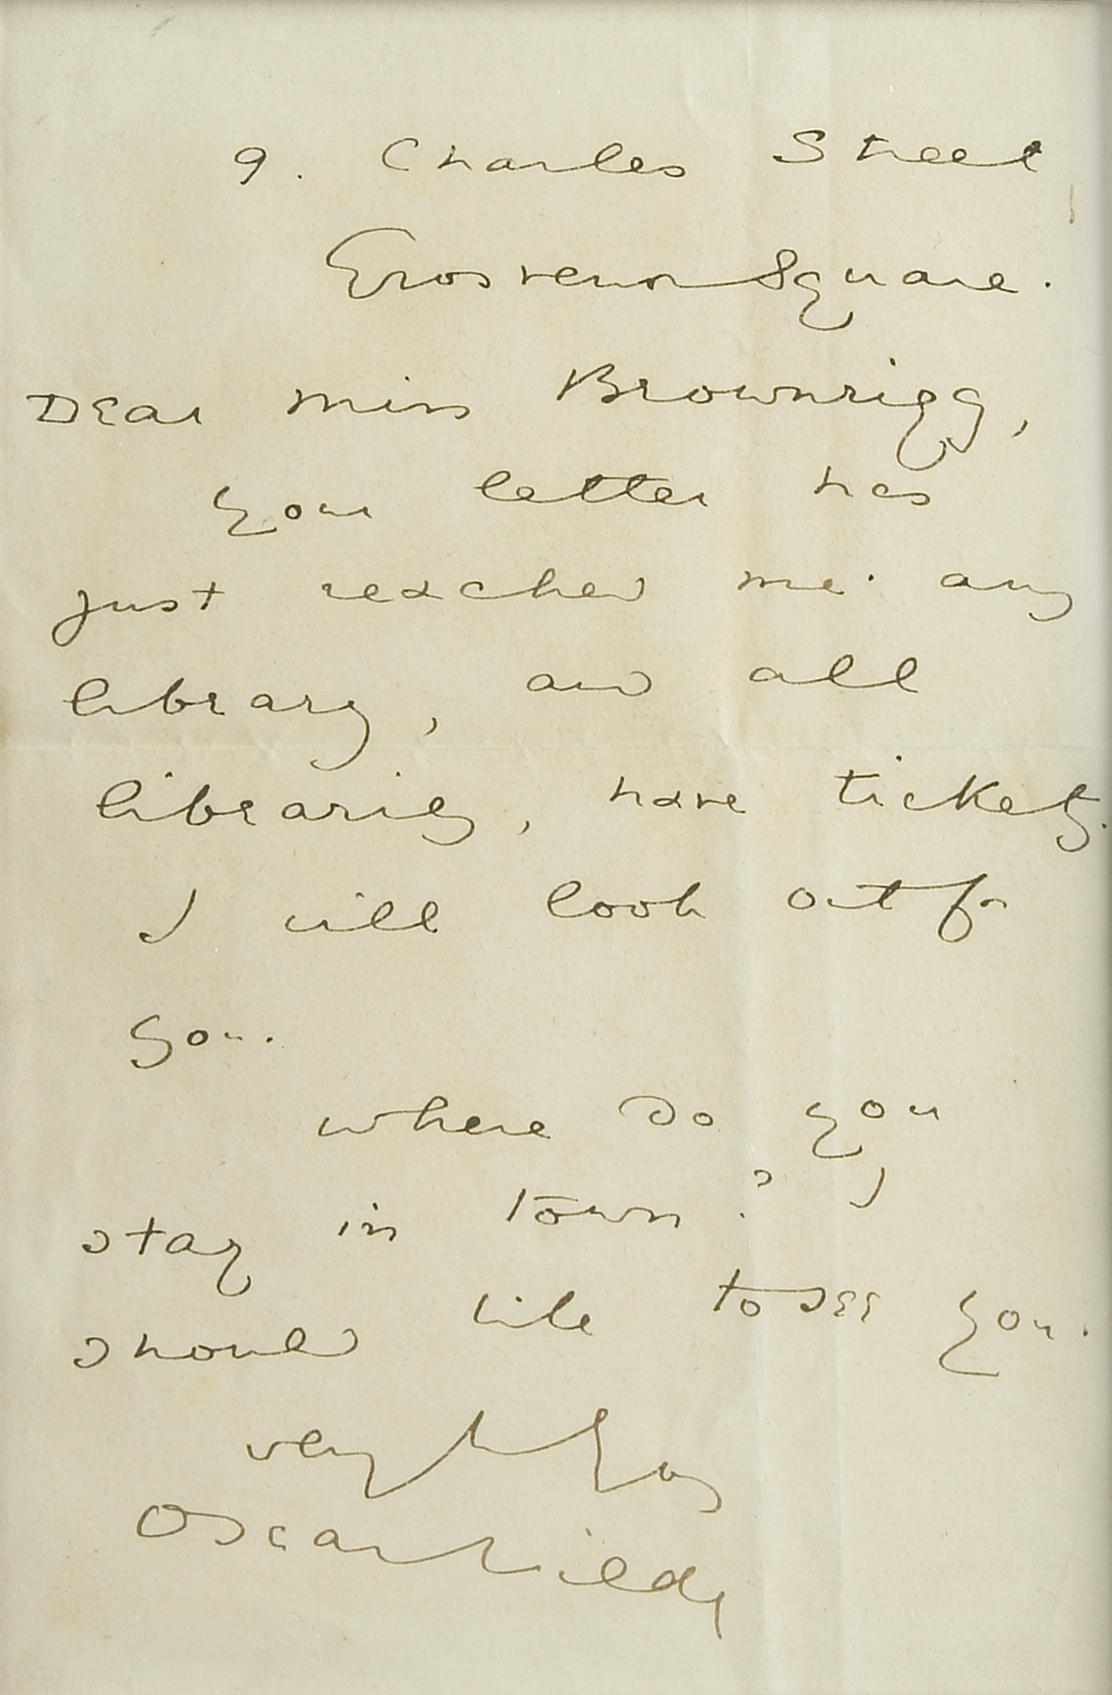 9. Charles Street
Grosvenor Square.
Dear Miss Brownrigg,
your letter has
just reached me. any
library, and all
libraries, have tickets.
I will look out for
you.
where do you
stay in town? I
should like to see you.
very truly yours
Oscar Wilde